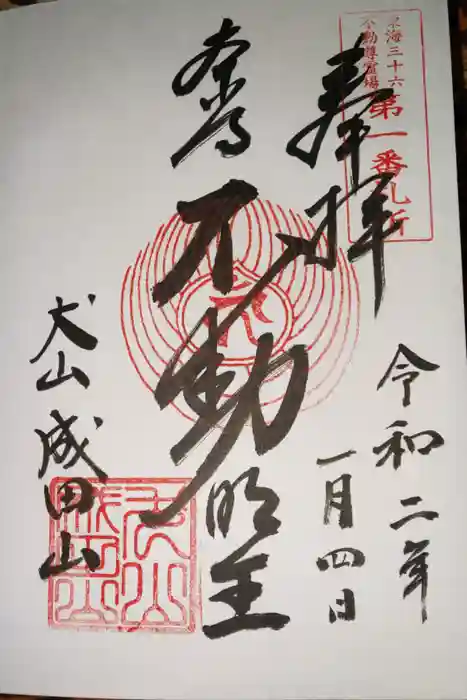 東海三十六
不動尊霊場
第一番札所
奉拝
令和二年
一月四日
奉
不動明王
犬山成田山